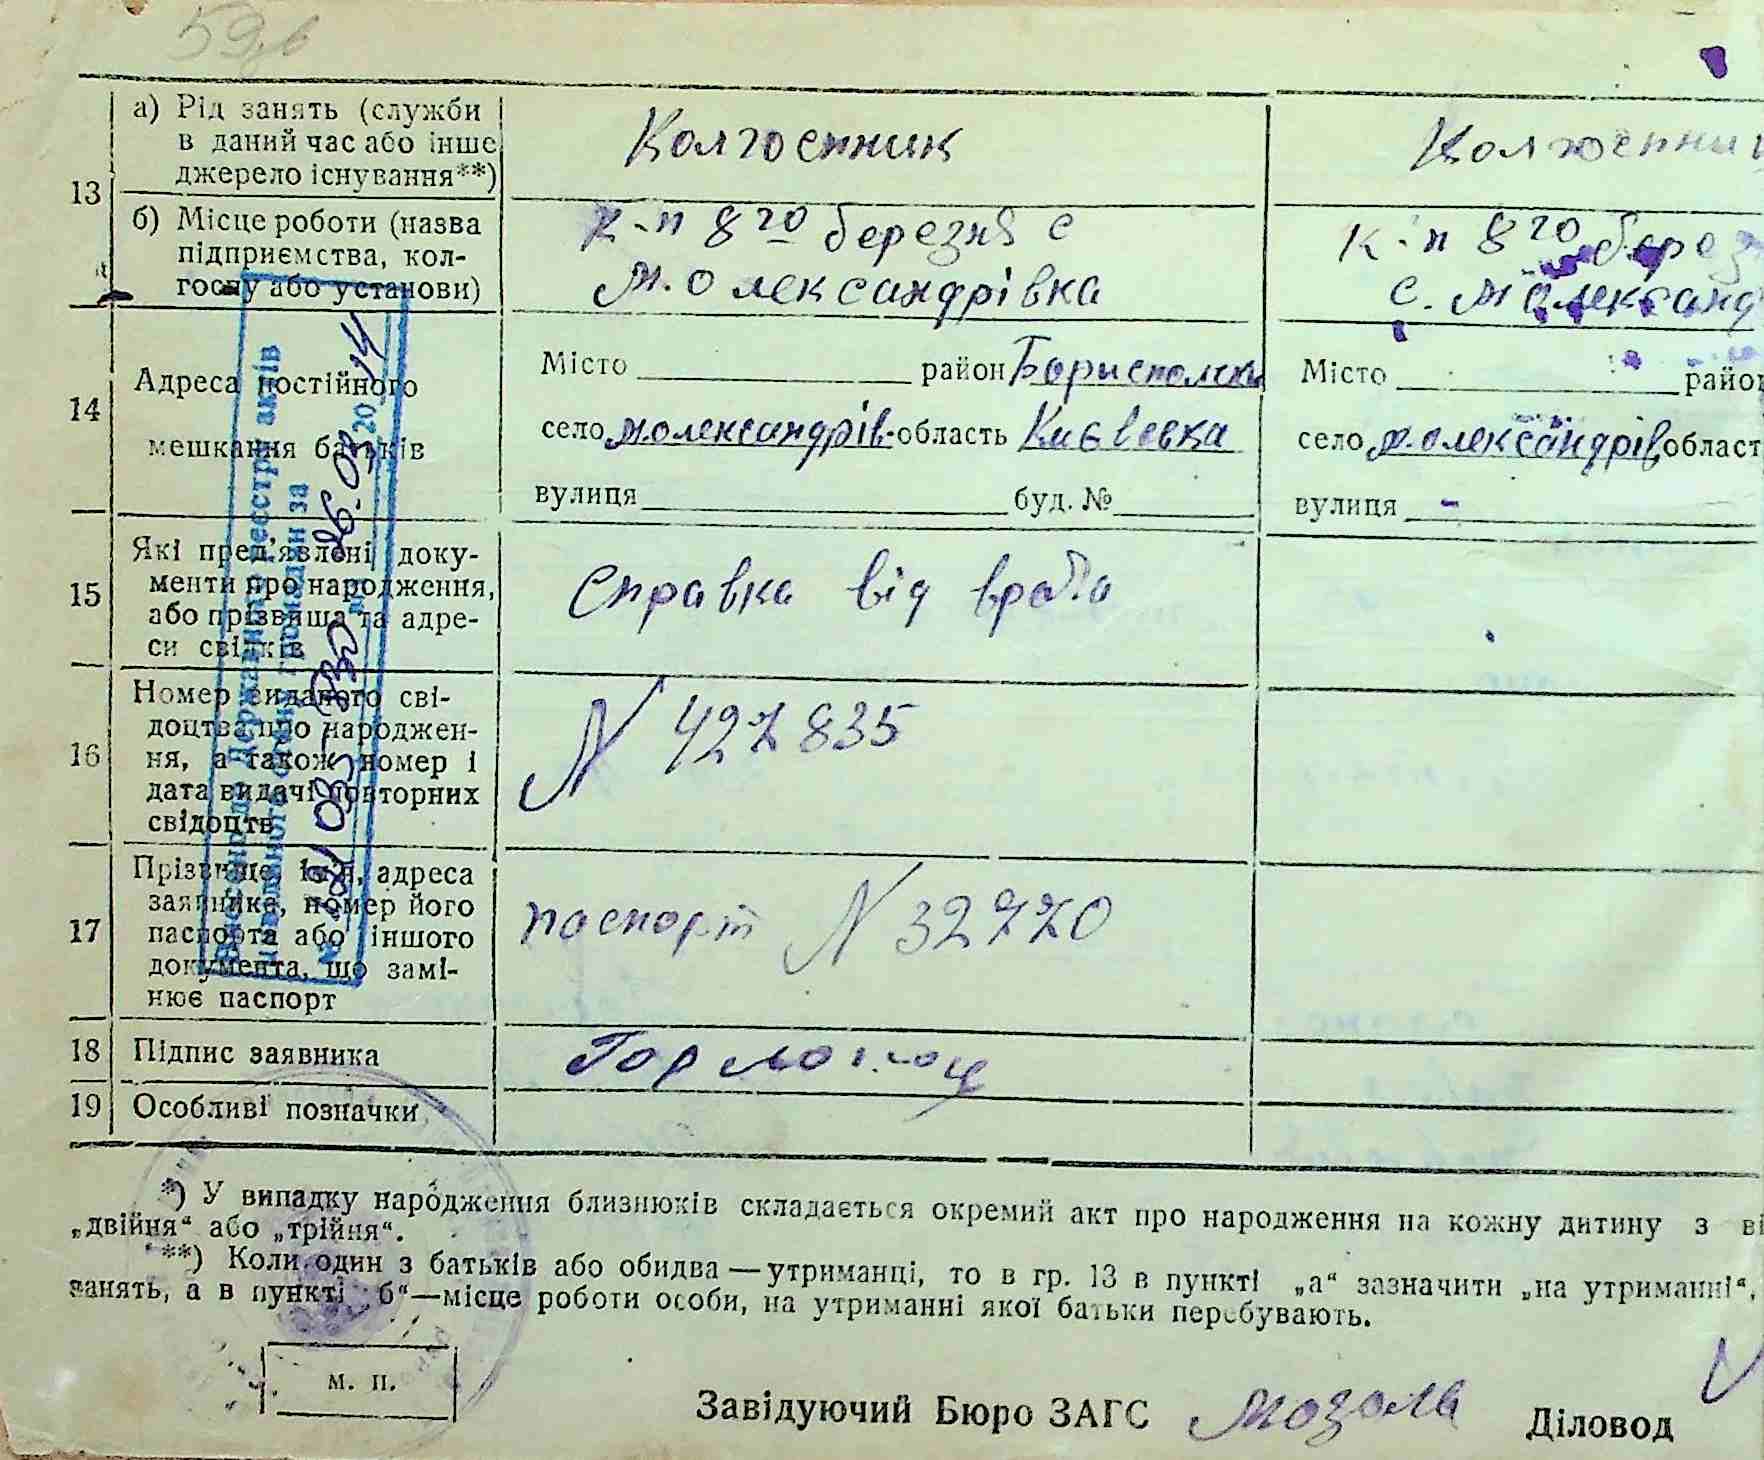 59
13
а) Рід занять (служби
в даний час або інше
джерело існування**)
Колгоспник
Колгоспни
б) Місце роботи (назва
підприємства, кол-
госпу або установи)
к-п 8го березня с
М. Олександрівка
к-п 8го берез
с. М Олександ
14
Адреса постійного
мешкання батьків
Місто район Бориспольськ
село М.Олександрів- область Києвська
вулиця буд. №
Місто район
село М.Олександрів област
вулиця -
15
Які пред'явлені доку-
менти про народження,
або прізвища та адре-
си свідків
Справка від врача
16
Номер виданого сві-
доцтва про народжен-
ня, а також номер і
дата видачі повторних
свідоцтв
N 427835
17
Прізвище, ім'я, адреса
заявника, номер його
паспорта або іншого
документа, що замі-
нює паспорт
паспорт N 32770
18
Підпис заявника
19
Особливі позначки
Державного реєстру актів
громадян за
№
26.08.2014
*) У випадку народження близнюків складається окремий акт про народження на кожну дитину з ві
„двійня“ або „трійня“.
**) Коли один з батьків або обидва — утриманці, то в гр. 13 в пункті „а“ зазначити „на утриманні“,
занять, а в пункті „б“—місце роботи особи, на утриманні якої батьки перебувають.
М. П.
Завідуючий Бюро ЗАГС Мозоль Діловод